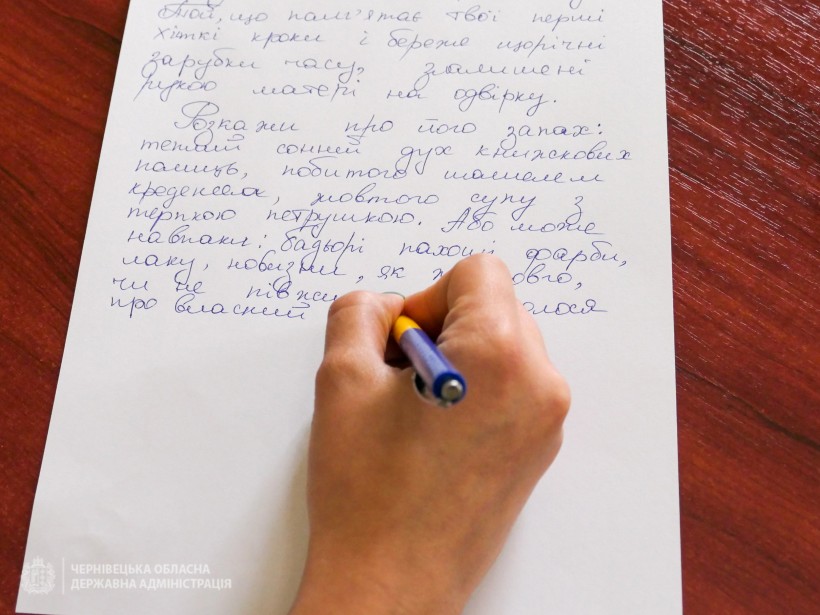 Той, що пам'ятає твої перші
хіткі кроки і береже щорічні
зарубки часу, залишені
рукою матері на одвірку.
Розкажи про його запах:
теплий сонний дух книжкових
полиць, побитого шашелем
креденса, жовтого супу з
терпкою петрушкою. Або може
навпаки: бадьорі пахощі фарби,
лаку, новизни, як
чи не
про власний
ЧЕРНІВЕЦЬКА ОБЛАСНА
ДЕРЖАВНА АДМІНІСТРАЦІЯ